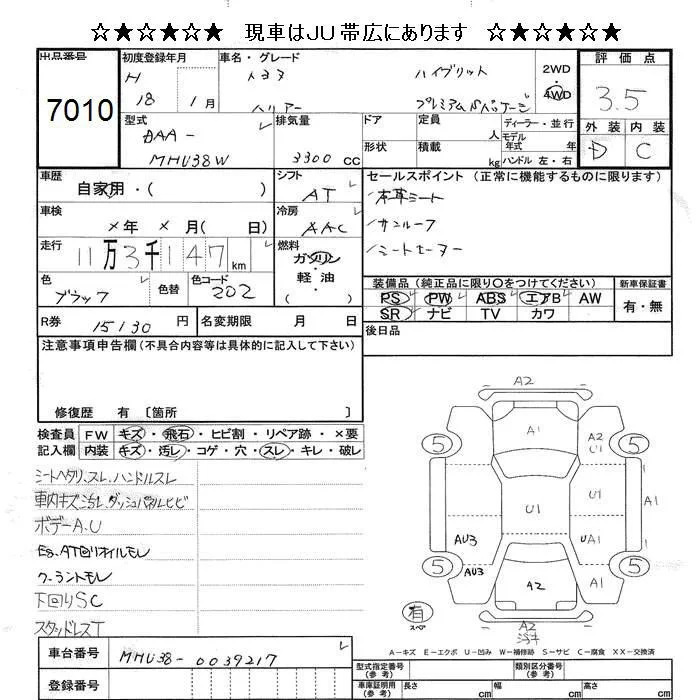 ☆★☆★☆★☆ 現車はJU帯広にあります ☆★☆★☆★☆
出品番号 初度登録年月 車名・グレード 評価点
7010 H 18 1月 トヨタ ハイブリット 2WD 4WD 3.5
ハリアー プレミアムSパッケージ
外装 内装
D C
型式 排気量 ドア 定員 人 ディーラー・並行
DAA- モデル 年式 年
MHU38W 3300 CC 形状 積載 kg ハンドル 左・右
車歴 シフト セールスポイント (正常に機能するものに限ります)
自家用・( ) AT 本革シート
車検 冷房 サンルーフ
×年 ×月( 日) AAC シートヒーター
走行 燃料
11万3千147km ガソリン
軽油
( )
色 色替 色コード 装備品 (純正品に限り○をつけてください) 新車保証書
ブラック 202 PS PW ABS エアB AW 有・無
SR ナビ TV カワ
R券 15130 円 名変期限 月 日 後日品
注意事項申告欄 (不具合内容等は具体的に記入して下さい)
修復歴 有 〔箇所 〕
検査員 FW キズ・飛石・ヒビ割・リペア跡・×要
記入欄 内装 キズ・汚レ・コゲ・穴・スレ・キレ・破レ
シートヘタリ、スレ、ハンドルスレ
車内キズ汚レ、ダッシュパネルヒビ
ボデーA.U
Eg、AT回りオイルモレ
クーラントモレ
下回りSC
スタッドレスT
A2
A1
5 A2 U1 5
U1 A1 A1
AU3 UA1
5 AU3 A2 A1 5
有 スペア
A2
A-キズ E-エクボ U-凹み W-補修跡 S-サビ C-腐食 XX-交換済
車台番号 MHU38-0039217
登録番号
型式指定番号 (参考) 類別区分番号 (参考)
車庫証明用 (参考) 長さ cm 幅 cm 高さ cm